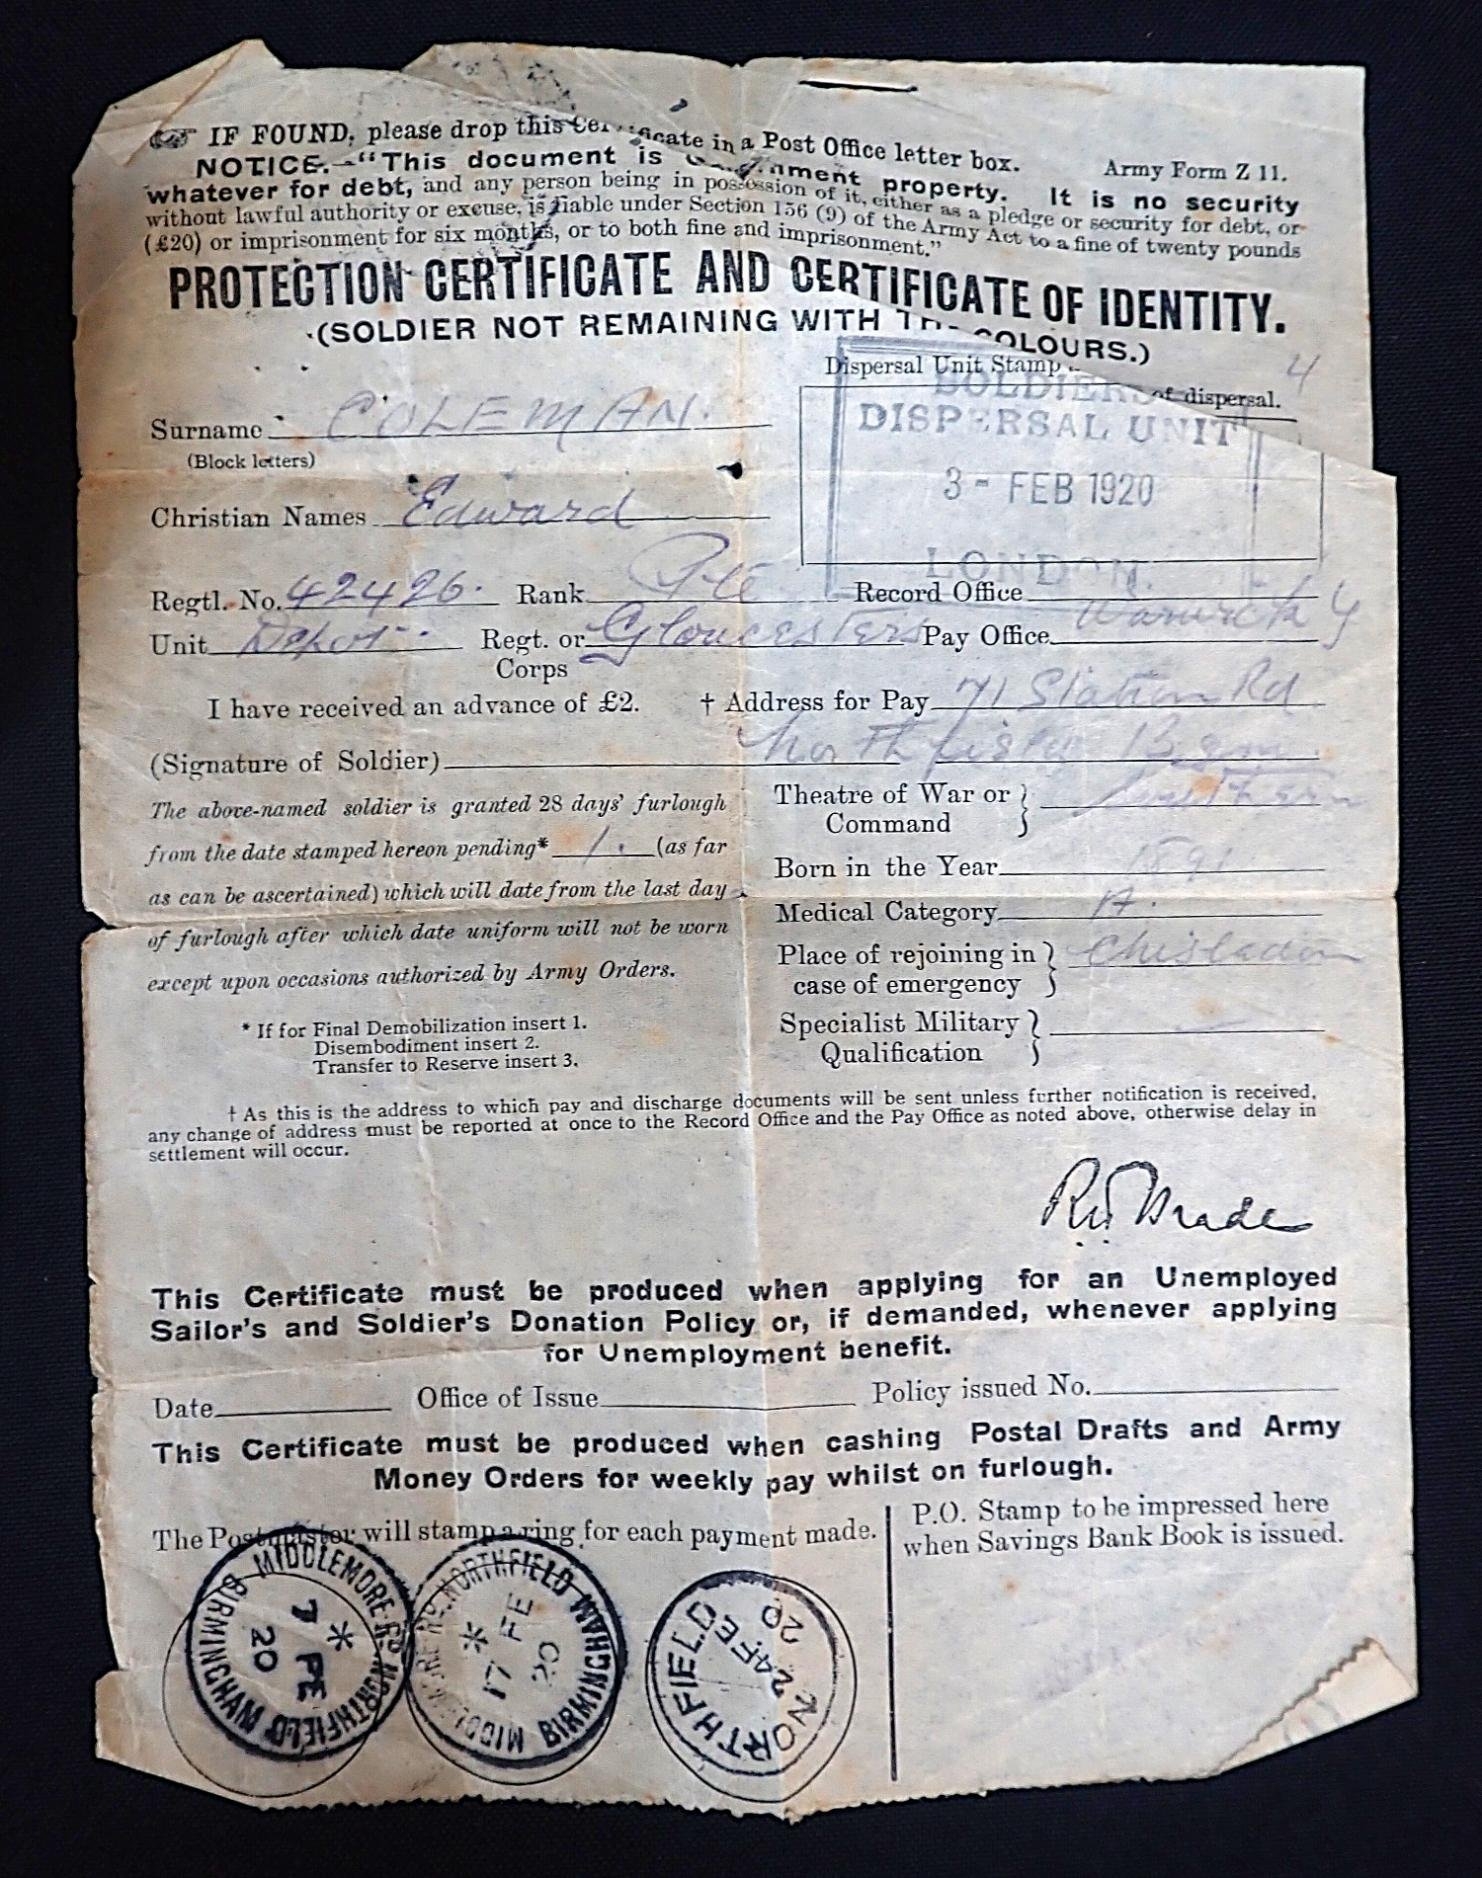 IF FOUND, please drop this Cer icate in a Post Office letter box.
Army Form Z 11.
NOTICE.—“This document is nment property. It is no security
whatever for debt, and any person being in possession of it, either as a pledge or security for debt, or
without lawful authority or excuse, is liable under Section 156 (9) of the Army Act to a fine of twenty pounds
(£20) or imprisonment for six months, or to both fine and imprisonment.”
PROTECTION CERTIFICATE AND CERTIFICATE OF IDENTITY.
(SOLDIER NOT REMAINING WITH TH COLOURS.)
Dispersal Unit Stamp of dispersal.
4
SOLDIERS
DISPERSAL UNIT
3 - FEB 1920
LONDON.
Surname COLEMAN.
(Block letters)
Christian Names Edward
Regtl. No. 42426. Rank Pte Record Office
Unit Depot Regt. or Gloucesters Pay Office Warwick
Corps
I have received an advance of £2. † Address for Pay 71 Station Rd
Northfield Bgm.
(Signature of Soldier)
The above-named soldier is granted 28 days' furlough
from the date stamped hereon pending* 1. (as far
as can be ascertained) which will date from the last day
of furlough after which date uniform will not be worn
except upon occasions authorized by Army Orders.
* If for Final Demobilization insert 1.
Disembodiment insert 2.
Transfer to Reserve insert 3.
Theatre of War or
Command
Born in the Year 1891
Medical Category A.
Place of rejoining in Chisledon
case of emergency
Specialist Military
Qualification
† As this is the address to which pay and discharge documents will be sent unless further notification is received,
any change of address must be reported at once to the Record Office and the Pay Office as noted above, otherwise delay in
settlement will occur.
This Certificate must be produced when applying for an Unemployed
Sailor's and Soldier's Donation Policy or, if demanded, whenever applying
for Unemployment benefit.
Date Office of Issue Policy issued No.
This Certificate must be produced when cashing Postal Drafts and Army
Money Orders for weekly pay whilst on furlough.
The Postmaster will stamp a ring for each payment made.
P.O. Stamp to be impressed here
when Savings Bank Book is issued.
MIDDLEMORE RD NORTHFIELD BIRMINGHAM
* 7 FE 20
RD. NORTHFIELD BIRMINGHAM
* 17 FE 20
NORTHFIELD
24 FE 20